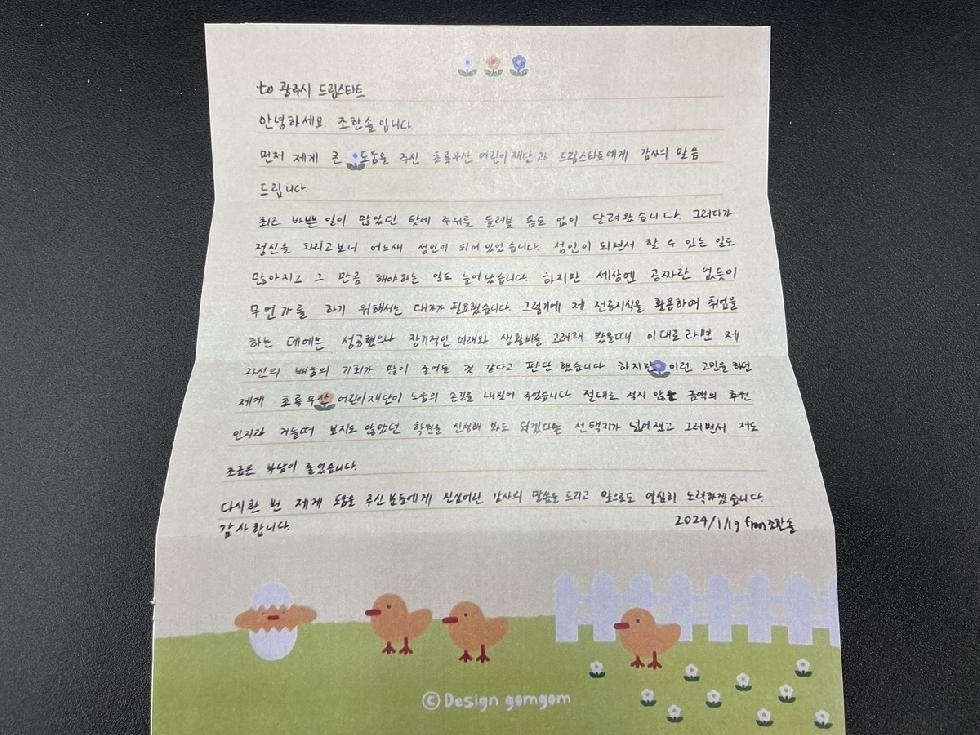 to 광주시 드림스타트
안녕하세요 조한솔입니다.
먼저 제게 큰 도움을 주신 초록우산 어린이재단과 드림스타트에게 감사의 말씀
드립니다.
최근 바쁜 일이 많았던 탓에 주위를 둘러볼 틈도 없이 달려왔습니다. 그러다가
정신을 차리고보니 어느새 성인이 되어 있었습니다. 성인이 되면서 할 수 있는 일도
많아지고 그 만큼 해야하는 일도 늘어났습니다. 하지만 세상엔 공짜란 없듯이
무언가를 하기 위해서는 대가가 필요했습니다. 그렇기에 저 전공지식을 활용하여 취업을
하는 데에는 성공했으나 장기적인 미래와 생활비를 고려해 봤을때 이대로라면 제
자신의 배움의 기회가 많이 줄어들 것 같다고 판단했습니다. 하지만 이런 고민을 하던
제게 초록우산 어린이재단이 도움의 손길을 내밀어 주었습니다. 절대로 적지 않은 금액의 후원
인지라 겨울때 보지도 않았던 학원을 신청해 봐도 되겠다는 선택지가 넓어졌고 그러면서 저도
조금은 부담이 줄었습니다.
다시한 번 제게 도움을 주신분들에게 진심어린 감사의 말씀을 드리고 앞으로도 열심히 노력하겠습니다.
감사합니다.
2024/1/19 from 조한솔
© Design gomgom